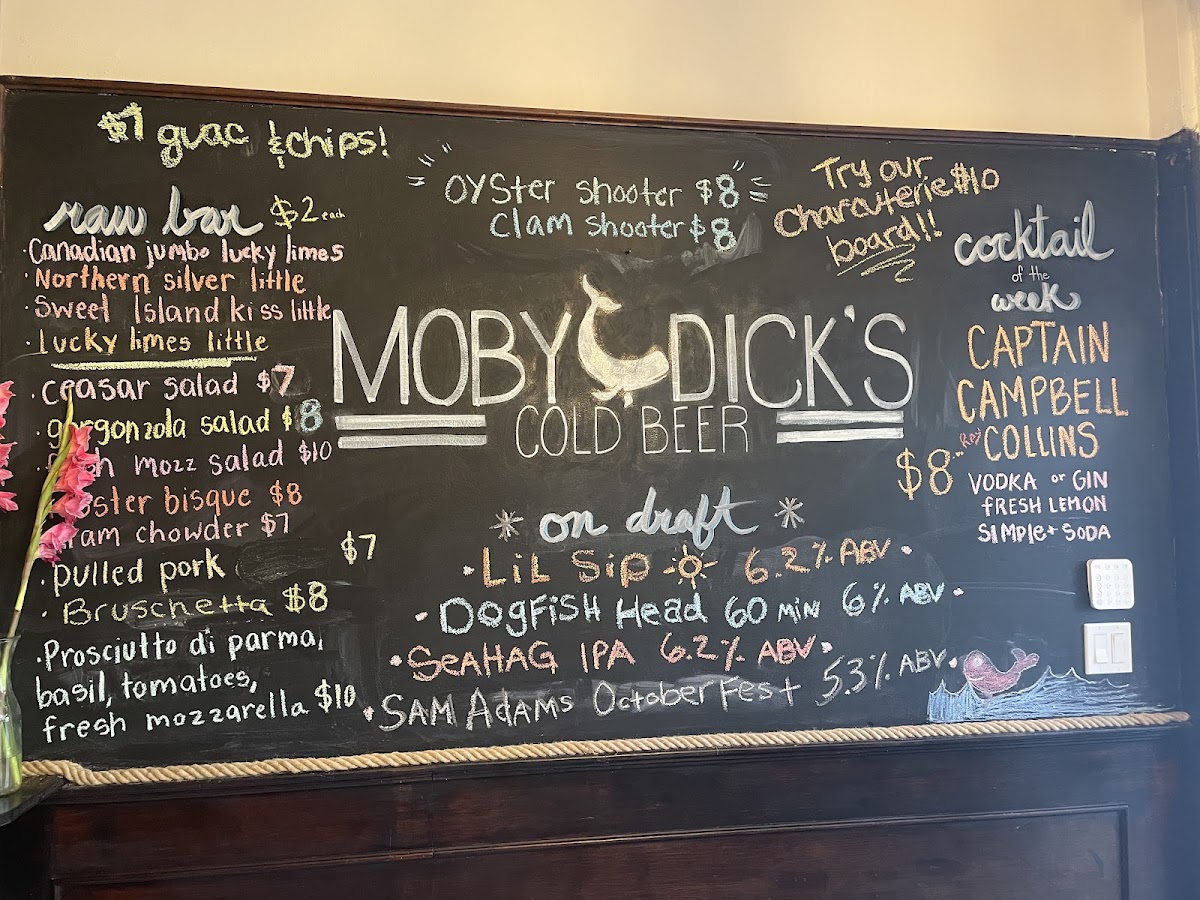 $7 guac & chips!
raw bar $2 each
·Canadian jumbo lucky limes
·Northern silver little
·Sweet Island kiss little
·Lucky limes little
·ceasar salad $7
·gorgonzola salad $8
mozz salad $10
bisque $8
chowder $7
·pulled pork $7
·Bruschetta $8
·Prosciutto di parma,
basil, tomatoes,
fresh mozzarella $10
OYSter shooter $8
Clam shooter $8
Try our
Charcuterie $10
board!!
MOBY DICK'S
COLD BEER
on draft
·LiL Sip 6.2% ABV·
·DOGFiSH Head 60 MiN 6% ABV·
·SeAHAG IPA 6.2% ABV·
·SAM ADAMs OctoberFest 5.3% ABV·
cocktail
of the
week
CAPTAIN
CAMPBELL
COLLINS
$8
VODKA or GIN
fRESH LEMON
SIMPle + SODA